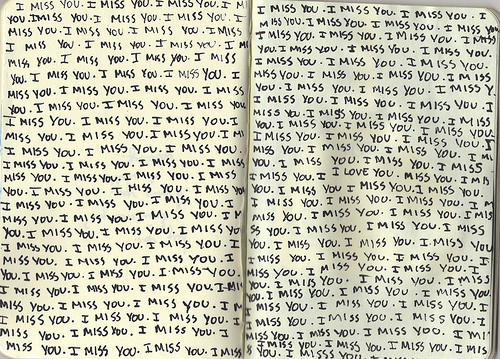 I MISS YOU. I MISS YOU. I MISS YOU. I
YOU. I MISS YOU. I MISS YOU. I MISS YOU. I
MISS YOU. I MISS YOU. I MISS YOU. I MISS YOU.
I MISS YOU. I MISS YOU. I MISS YOU. I
YOU. I MISS YOU. I MISS YOU. I MISS
YOU. I MISS YOU. I MISS YOU. I MISS YOU. I
MISS YOU. I MISS YOU. I MISS YOU. I MISS
YOU. I MISS YOU. I MISS YOU. I MISS YOU
I MISS YOU. I MISS YOU. I MISS YOU. I
MISS YOU. I MISS YOU. I MISS YOU. I
I MISS YOU. I MISS YOU. I MISS YOU. I
I MISS YOU. I MISS YOU. I MISS YOU. I MISS
MISS YOU. I MISS YOU. I MISS YOU. I MISS
YOU. I MISS YOU. I MISS YOU. I MISS YOU
MISS YOU. I MISS YOU. I MISS YOU. I MISS
MISS YOU. I MISS YOU. I MISS YOU. I
YOU. I MISS YOU. I MISS YOU. I MISS YOU. I
I MISS YOU. I MISS YOU. I MISS YOU. I
MISS YOU. I MISS YOU. I MISS YOU. I
YOU. I MISS YOU. I MISS YOU. I MISS YOU.
I MISS YOU. I MISS YOU. I MISS YOU. I MISS
MISS YOU. I MISS YOU. I MISS YOU. I MISS
I MISS YOU. I MISS YOU. I MISS YOU. I
MISS YOU. I MISS YOU. I MISS YOU. I
MISS YOU. I MISS YOU. I MISS YOU. I MISS
I MISS YOU. I MISS YOU. I MISS YOU. I
MISS YOU. I MISS YOU. I MISS YOU. I MISS YOU
YOU. I MISS YOU. I MISS YOU. I MISS
I MISS YOU. I MISS YOU. I MISS YOU.
MISS YOU. I MISS YOU. I MISS YOU. I MISS
I MISS YOU. I MISS YOU. I MISS YOU. I
MISS YOU. I MISS YOU. I MISS YOU. I MISS
YOU. I MISS YOU. I MISS YOU. I MISS YOU. I
MISS YOU. I MISS YOU. I MISS YOU. I MISS
YOU. I MISS YOU. I MISS YOU. I MISS YOU.
MISS YOU. I MISS YOU. I MISS YOU. I
YOU. I MISS YOU. I MISS YOU. I MISS
YOU. I MISS YOU. I LOVE YOU. MISS YOU. I
YOU. I MISS YOU. I MISS YOU. I MISS YOU.
I MISS YOU. I MISS YOU. I MISS YOU. I MISS
MISS YOU. I MISS YOU. I MISS YOU. I
YOU. I MISS YOU. I MISS YOU. I MISS
YOU. I MISS YOU. I MISS YOU. I MISS YOU
I MISS YOU. I MISS YOU. I MISS YOU. I
MISS YOU. I MISS YOU. I MISS YOU. I
YOU. I MISS YOU. I MISS YOU. I MISS YOU.
MISS YOU. I MISS YOU. I MISS YOU. I MISS YOU
MISS YOU. I MISS YOU. I MISS YOU. I
MISS YOU. I MISS YOU. I MISS YOU. I MISS
YOU. I MISS YOU. I MISS YOU. I MISS YOU. I
I MISS YOU. I MISS YOU. I MISS